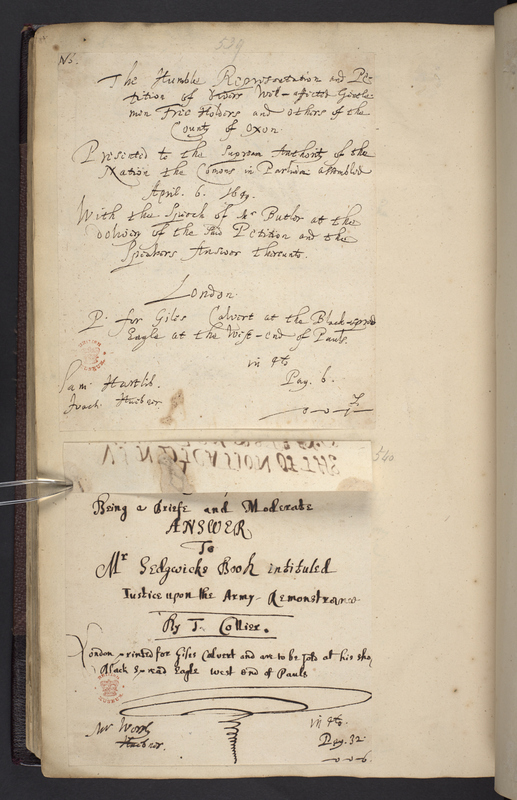 539
No.
The Humble Representation and Pe-
tition of Divers Wel-affected Gentle-
men Free Holders and others of the
County of Oxon
Presented to the Supream Authority of the
Nation the Comons in Parliam: assembled
April. 6. 1649.
With the Speech of Mr Butler at the
delivery of the said Petition and the
Speakers Answer thereunto.
London
P. for Giles Calvert at the Black-spred
Eagle at the West-end of Pauls.
in 4to
Sam: Hartlib.
Pag. 6.
Joach. Huebner
0-0-1
540
VINDICATION OF THE
Being a Briefe and Moderate
ANSWER
To
Mr Sedgwicks Book intituled
Justice upon the Army-Remonstrance
By T. Collier.
London printed for Giles Calvert and are to be sold at his sho
Black spread Eagle West end of Pauls
in 4to.
Mr Worth
Huebner.
Pag. 32
0-0-6.